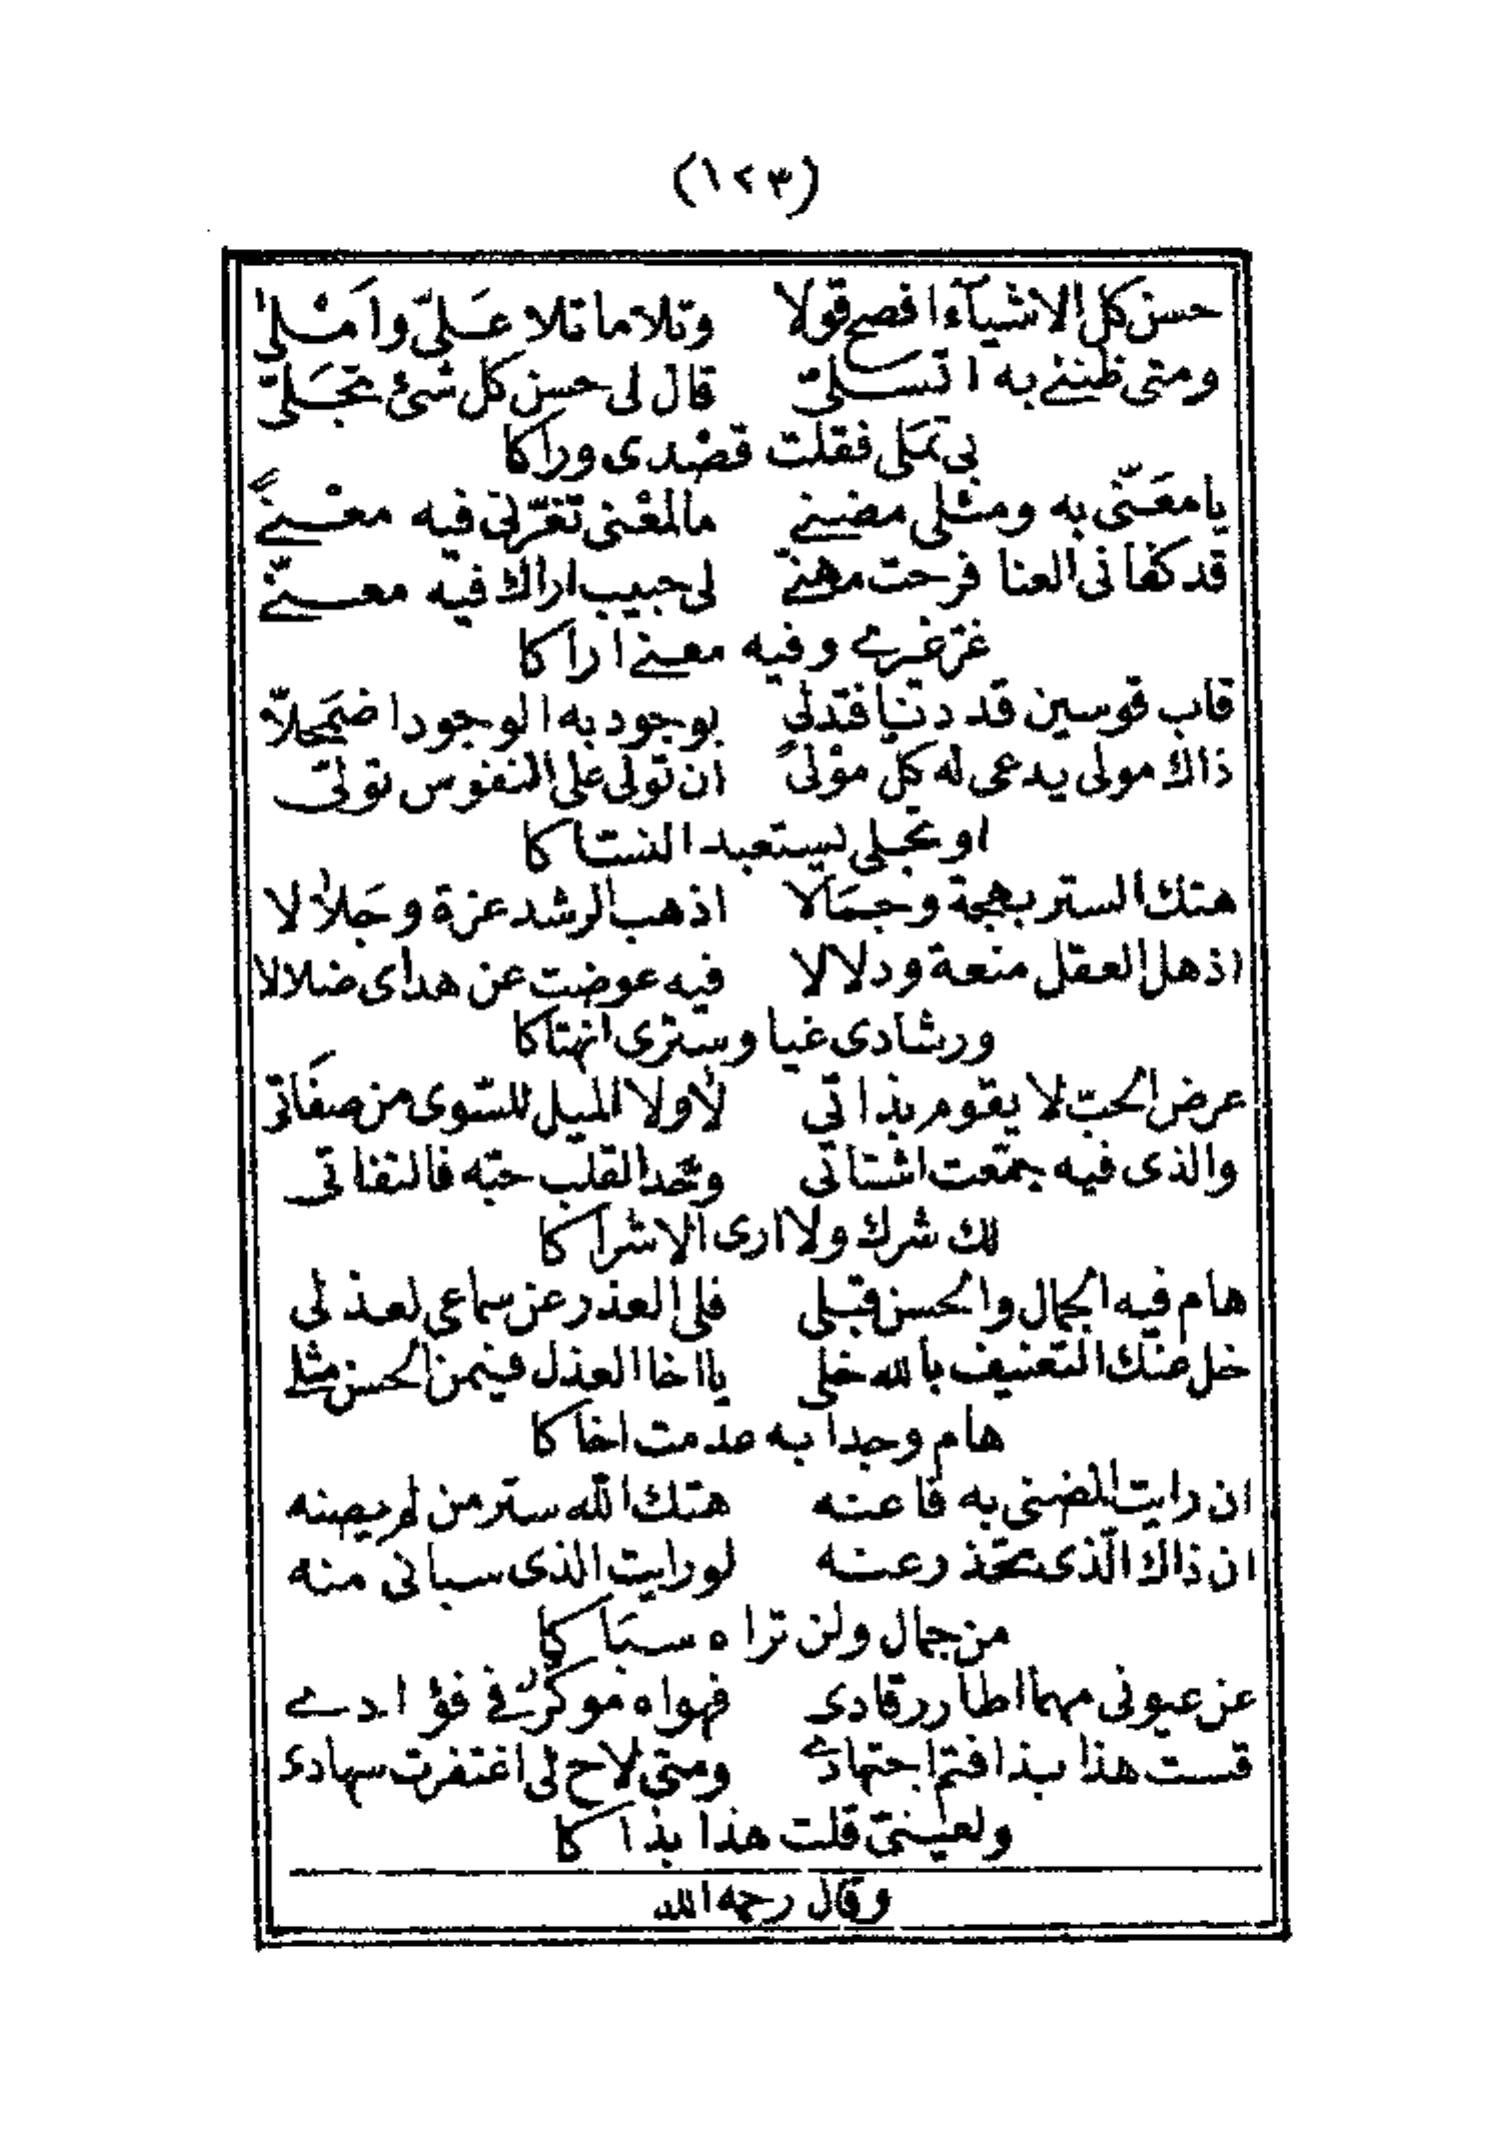 (١٢٣)
حسن كل الاشيآء افصح قولا وتلا ما تلا عَلىّ واَمْلىٰ
ومتى ظننے به اتسلىّ قال لى حسن كل شئ تجَلىّ
بى تمَلى فقلت قصْدى وراكا
يا معَنّى به ومثلى مضنے ما لمعْنى تغرّلى فيه معْنےً
قد كفانى العنا فرحت مهنےّ لى حبيب اراك فيه معنّے
غرّ غيرے وفيه معنے اراكا
قاب قوسين قد دنا فتدلى بوجود به الوجود اضمَحلاّ
ذاك مولى يدعى له كلّ موْلىً ان تولى على النفوس تولى
او تجلى يستعبد النساكا
هتك الستر بهجة وجمَالا اذهب الرشد عزة وجَلالا
اذهل العقل منعة ودلالا فيه عوضت عن هداى ضلالا
ورشادى غيا وسترى انهتاكا
عرض الحبّ لا يقوم بذاتى لا ولا الميل للسّوى من صفَاتى
والذى فيه جمّعت اشتاتى وحّد القلب حبّه فالتفاتى
لك شرك ولا ارى الاشراكا
هام فيه الجمال والحسن قبلى فلى العذر عن سماعى لعذلى
خل عنك التعنيف بالله خلى يا اخا العذل فيمن الحسن مثلے
هام وجدا به عدمت اخاكا
ان رايت المضنى به فاعنه هتك الله ستر من لم يصنه
ان ذاك الّذى تحّذر عنه لو رايت الذى سبانى منه
من جمال ولن تراه سبَاكا
عن عيونى مهما اطار رقادى فهواه موكّر فى فؤادے
قست هذا بذا فتم اجتهادے ومتى لاح لى اغتفرت سهادى
ولعينىّ قلت هذا بذاكا
وقال رحمه الله